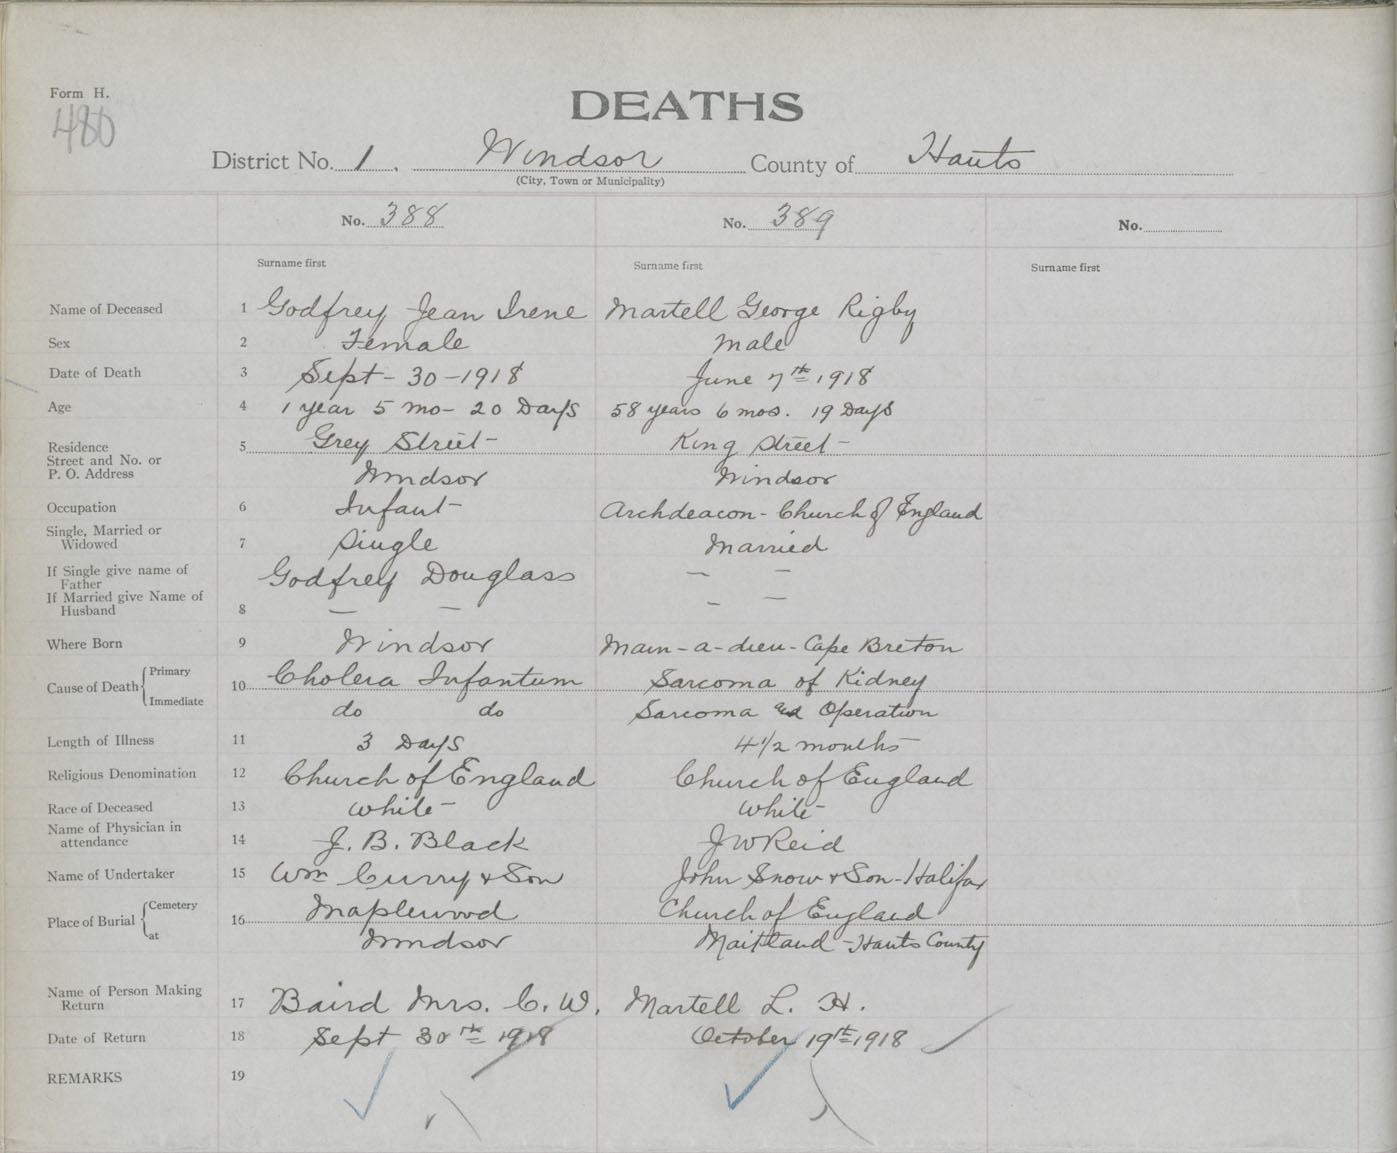 Form H.
480
DEATHS
District No. 1. Windsor County of Hants
(City, Town or Municipality)
No. 388 No. 389 No.
Surname first Surname first Surname first
Name of Deceased 1 Godfrey Jean Irene Martell George Rigby
Sex 2 Female Male
Date of Death 3 Sept - 30 - 1918 June 7th 1918
Age 4 1 year 5 mo - 20 Days 58 years 6 mos. 19 Days
Residence
Street and No. or
P. O. Address
5 Grey Street - King Street -
Windsor Windsor
Occupation 6 Infant - Archdeacon - Church of England
Single, Married or
Widowed 7 Single Married
If Single give name of
Father
Godfrey Douglass — —
If Married give Name of
Husband 8 — — — —
Where Born 9 Windsor Main-a-dieu - Cape Breton
Cause of Death { Primary
Immediate
10 Cholera Infantum Sarcoma of Kidney
do do Sarcoma and Operation
Length of Illness 11 3 Days 4 1/2 months
Religious Denomination 12 Church of England Church of England
Race of Deceased 13 White - White -
Name of Physician in
attendance 14 J. B. Black J W Reid
Name of Undertaker 15 Wm Curry & Son John Snow & Son - Halifax
Place of Burial { Cemetery
at
16 Maplewood Church of England
Windsor Maitland - Hants County
Name of Person Making
Return 17 Baird Mrs. C. W. Martell L. H.
Date of Return 18 Sept 30th 1918 October 19th 1918
REMARKS 19